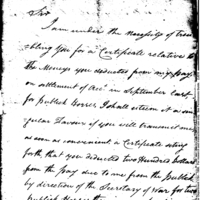 Sir
I am under the necessity of trou
bling you for a Certificate relative to
the Moneys you deducted from my pay
on settlement of Acct in September last
for publick Horses I shall esteem it a sin
gular favour if you will transmit me
as soon as convenient a Certificate seting
forth that you deducted two Hundred Dollars
from the pay due to me from the publick
by direction of the Secretary of War for two
publick Horses